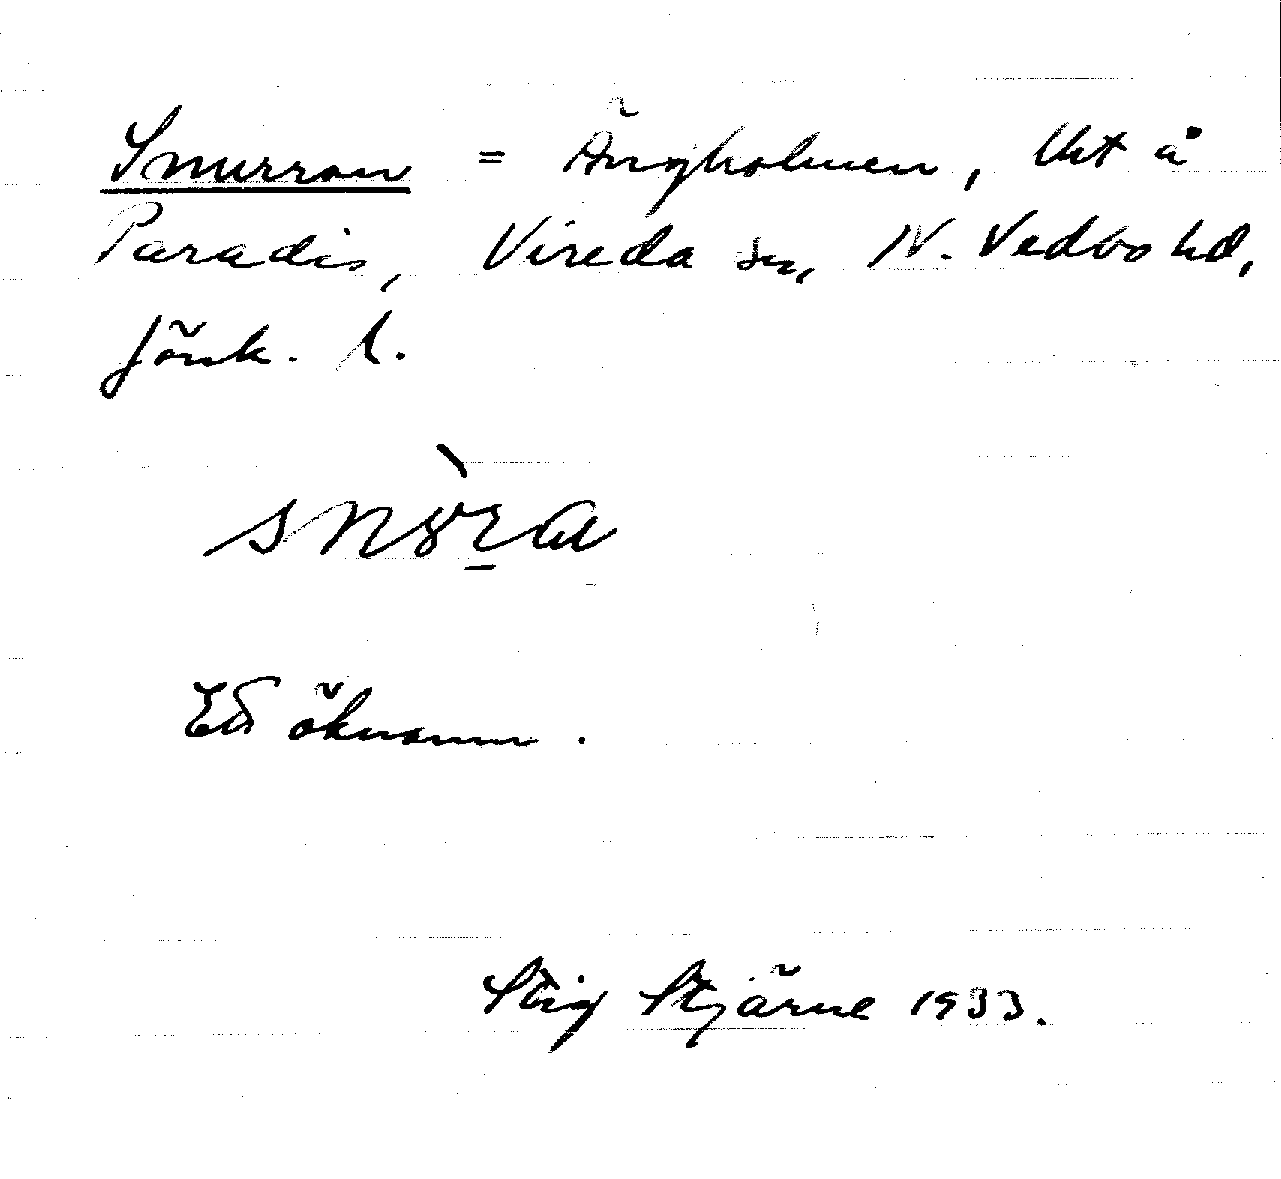 Snurran = Ängholmen, lht å
Paradis, Vireda sn, N. Vedbo hd,
Jönk. l.
snɤ̀ra
Ett öknamn.
Stig Stjärne 1933.